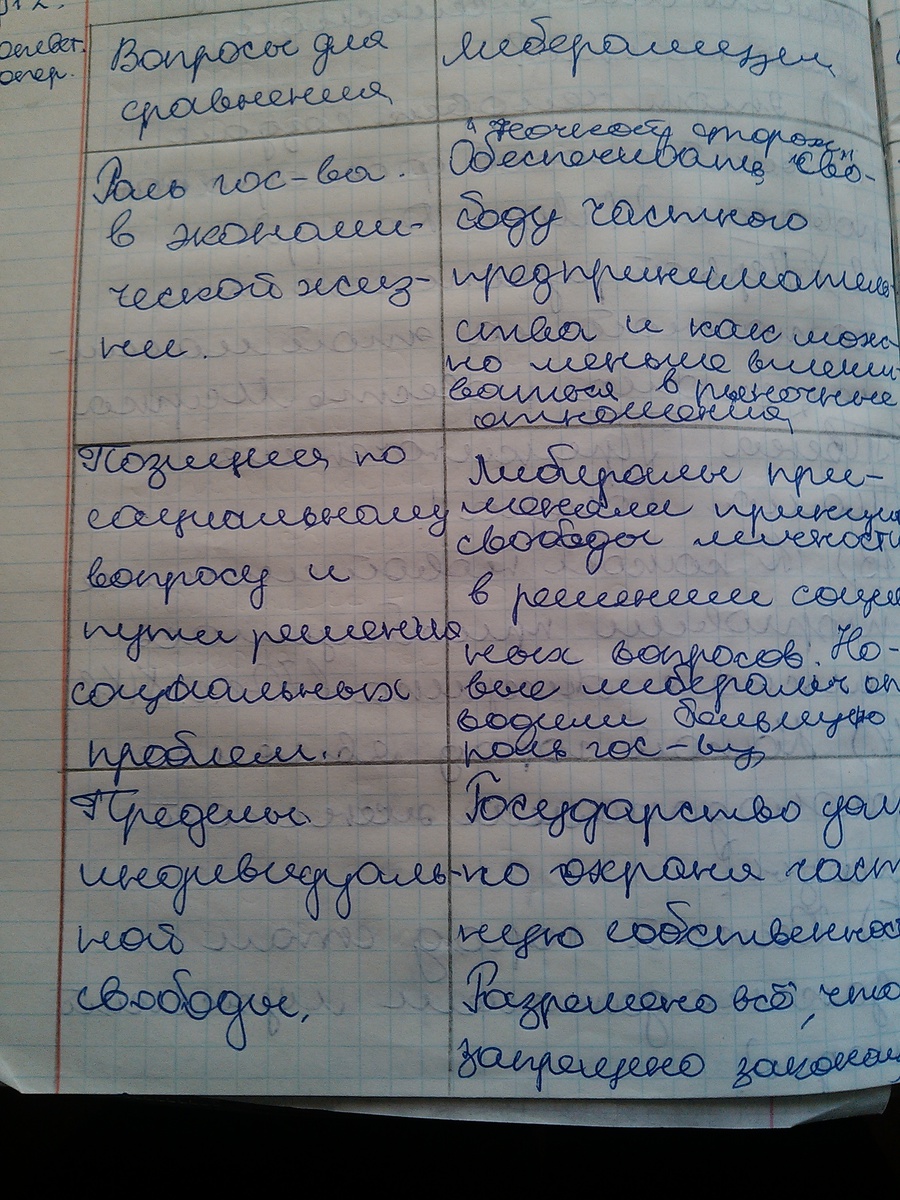 Вопросы для
сравнения
Либерализм
Роль гос-ва
в экономи-
ческой жиз-
ни.
"Ночной сторож"
Обеспечивать сво-
боду частного
предприниматель
ства и как мож-
но меньше вмеши-
ваться в рыночные
отношения
Позиция по
социальному
вопросу и
пути решения
социальных
проблем.
Либералы при-
меняли принцип
свободы личности
в решении соци
ных вопросов. Но-
вые либералы от
водили большую
роль гос-ву
Пределы
индивидуаль-
ной
свободы.
Государство дол
но охраня част
ную собственнос
Разрешено всё, что
запрещено законом